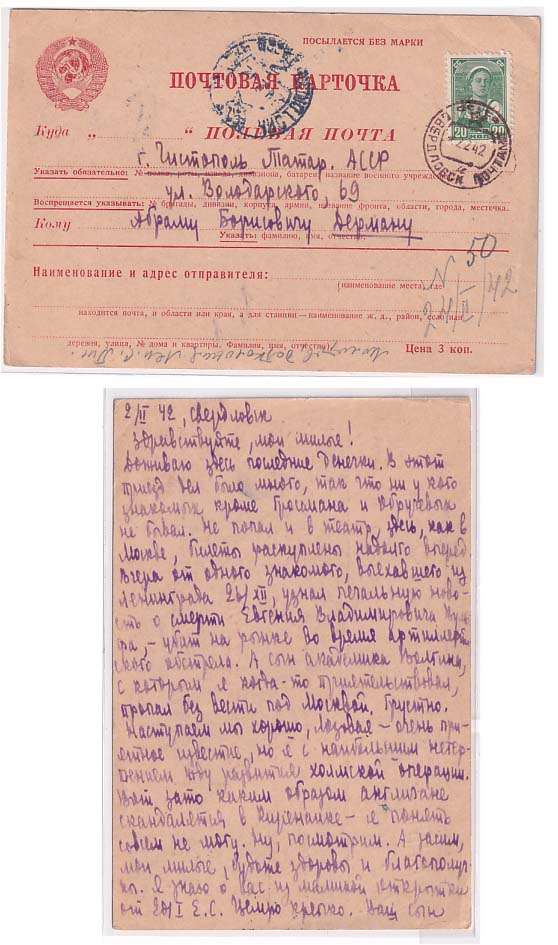 ПОСЫЛАЕТСЯ БЕЗ МАРКИ
ПОЧТОВАЯ КАРТОЧКА
Куда „ “ ПОЛЕВАЯ ПОЧТА
20 КОП. 20
СВЕРДЛОВСК ПОЧТАМТ
2 2 42
г. Чистополь Татар. АССР
Указать обязательно: № полка, роты, взвода, дивизиона, батареи название военного учреждения
ул. Володарского, 69
Воспрещается указывать: № бригады, дивизии, корпуса, армии, название фронта, области, города, местечка.
Кому Абраму Борисовичу Дерману
Указать: фамилию, имя, отчество.
N 50
24/II/42
Наименование и адрес отправителя:
(наименование места, где
находится почта, и области или края, а для станции—наименование ж. д., район, село или
деревня, улица, № дома и квартиры. Фамилия, имя, отчество)
Цена 3 коп.
2/II 42, Свердловск
Здравствуйте, мои милые!
Доживаю здесь последние денечки. В этот
приезд дел было много, так что ни у кого
знакомых кроме Гроссмана и Обручевых
не бывал. Не попал и в театр, здесь, как в
Москве, билеты раскуплены надолго вперед.
Вчера от одного знакомого, выехавшего из
Ленинграда 20/XII, узнал печальную ново-
сть о смерти Евгения Владимировича
– убит на рынке во время артиллерий-
ского обстрела. А сын академика
с которым я когда-то приятельствовал,
пропал без вести под Москвой. Грустно.
Наступаем мы хорошо, Лозовая – очень при-
ятное известие, но я с наибольшим нетер-
пением жду развития холмской операции.
Вот зато каким образом англичане
скандалятся в Киренаике – я понять
совсем не могу. Ну, посмотрим. А засим,
мои милые, будьте здоровы и благополуч-
ны. Я знаю о вас из маминой открытки
от 20/I Е.С. Целую крепко. Ваш сын